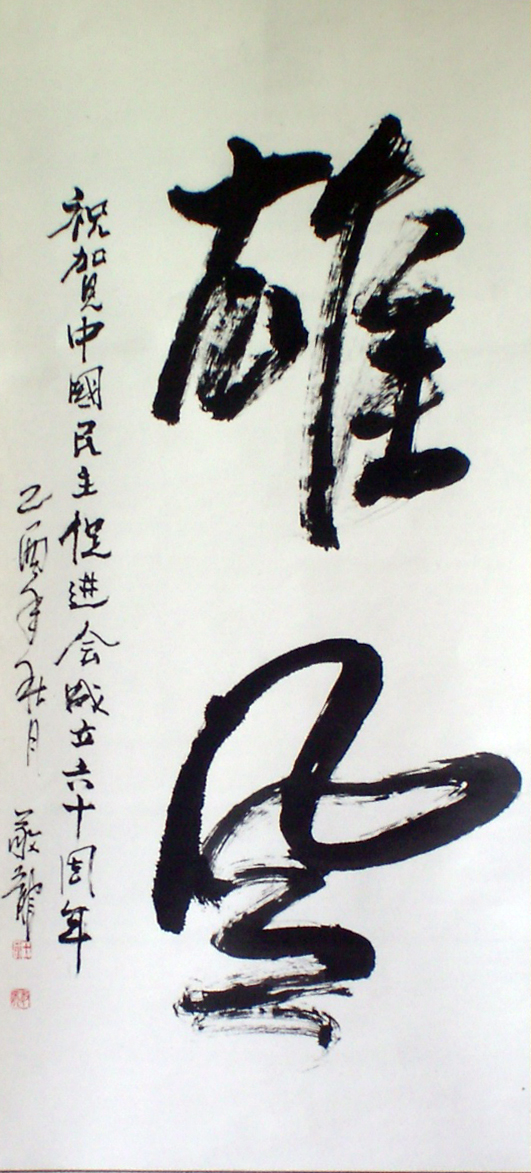 雄風
祝賀中國民主促进会成立六十周年
乙酉年秋月 敬龍